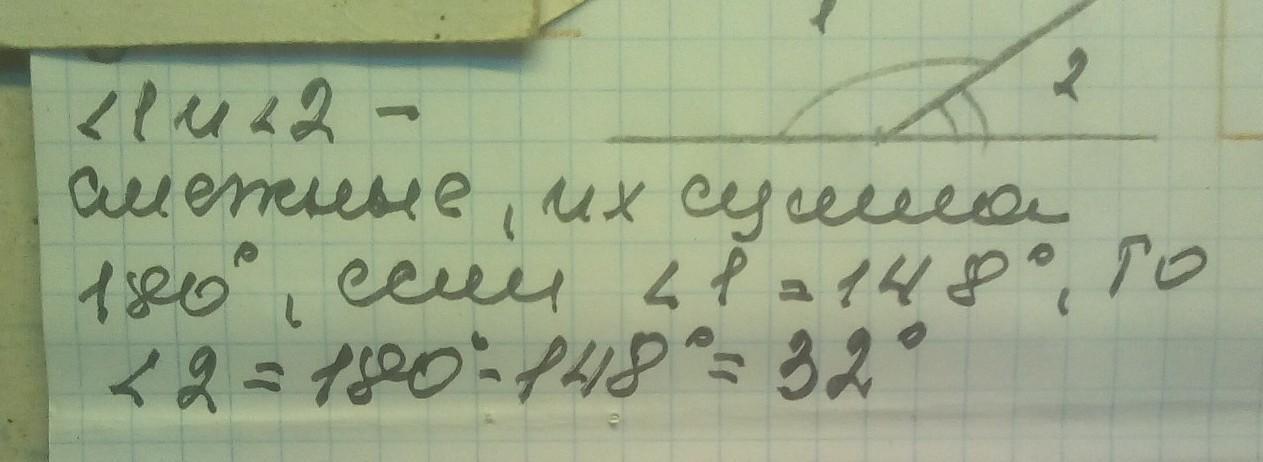 1
2
<1 и <2 -
смежные, их сумма
180°, если <1 = 148°, то
<2 = 180° - 148° = 32°